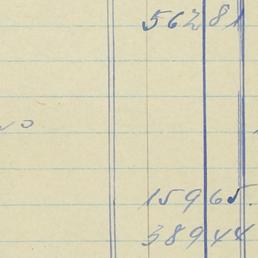 562 81
159 65
389 44